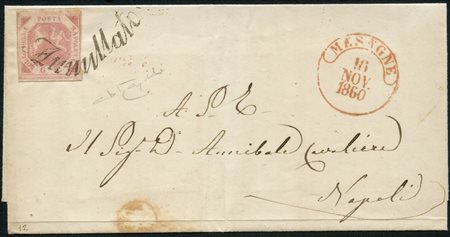 POSTA
Annullato
MESAGNE
16
NOV.
1860
A S. E.
Il Sig.r D. Annibale Cavaliere
Napoli
12